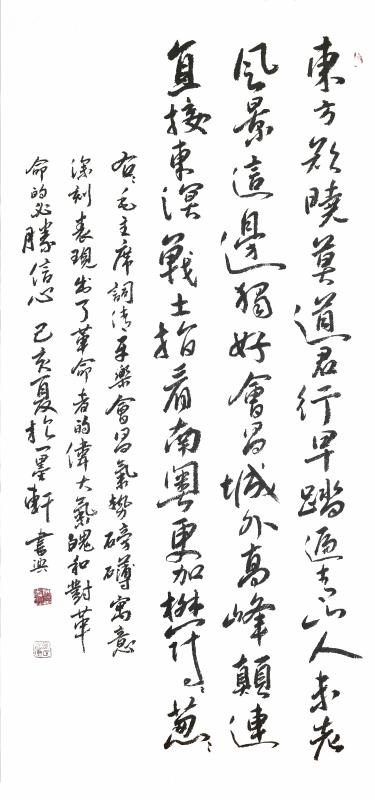 東方欲曉莫道君行早踏遍青山人未老
風景這邊獨好會昌城外高峰顛連
直接東溟戰士指看南粵更加欝〻葱〻
右毛主席詞清平樂會昌氣勢磅礴寓意
深刻表現出了革命者的偉大氣魄和對革
命的必勝信心 己亥夏於一墨軒 書興